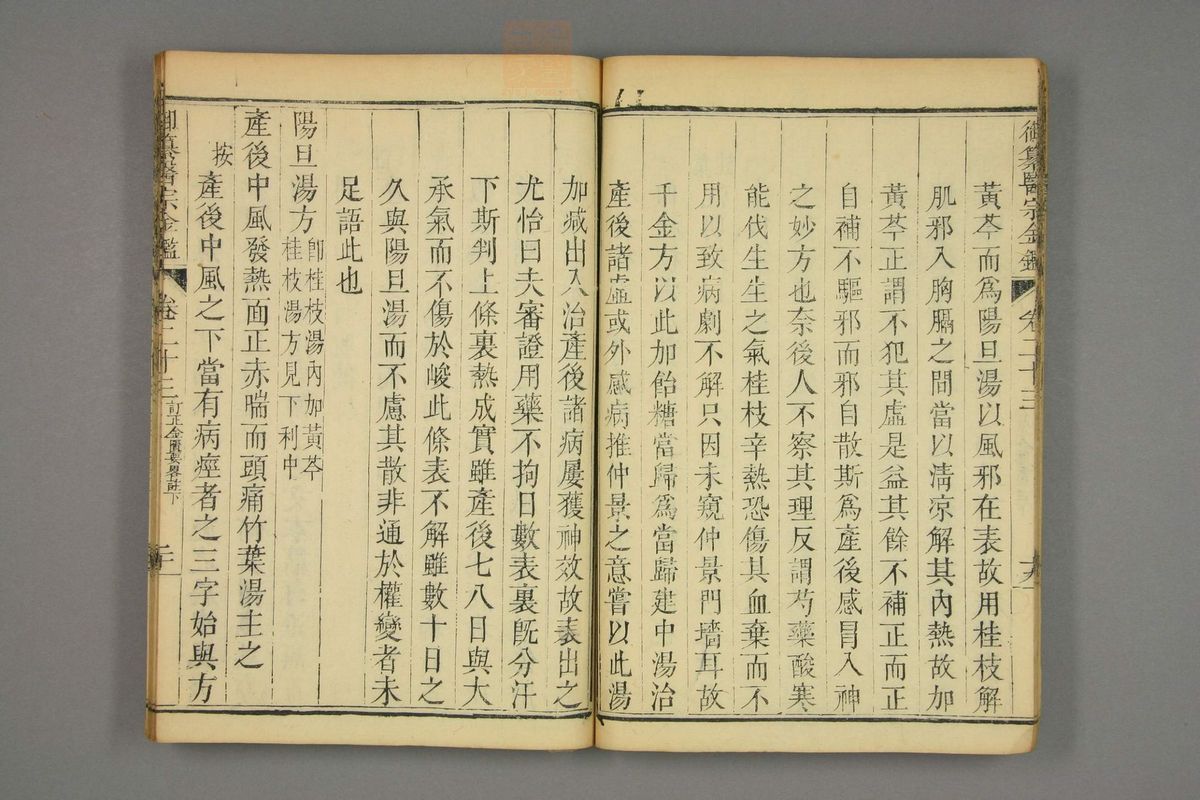 御纂醫宗金鑑 卷二十三
黃芩而爲陽旦湯以風邪在表故用桂枝解
肌邪入胸膈之間當以淸凉解其內熱故加
黃芩正謂不犯其虛是益其餘不補正而正
自補不驅邪而邪自散斯爲產後感冒入神
之妙方也奈後人不察其理反謂芍藥酸寒
能伐生生之氣桂枝辛熱恐傷其血棄而不
用以致病劇不解只因未窺仲景門墻耳故
千金方以此加飴糖當歸爲當歸建中湯治
產後諸虛或外感病推仲景之意嘗以此湯
加減出入治產後諸病屢獲神效故表出之
尤怡曰夫審證用藥不拘日數表裏旣分汗
下斯判上條裏熱成實雖產後七八日與大
承氣而不傷於峻此條表不解雖數十日之
久與陽旦湯而不慮其散非通於權變者未
足語此也
陽旦湯方 卽桂枝湯內加黃芩
桂枝湯方見下利中
產後中風發熱面正赤喘而頭痛竹葉湯主之
按產後中風之下當有病痙者之三字始與方
御纂醫宗金鑑 卷二十三 訂正金匱要畧註下 二十